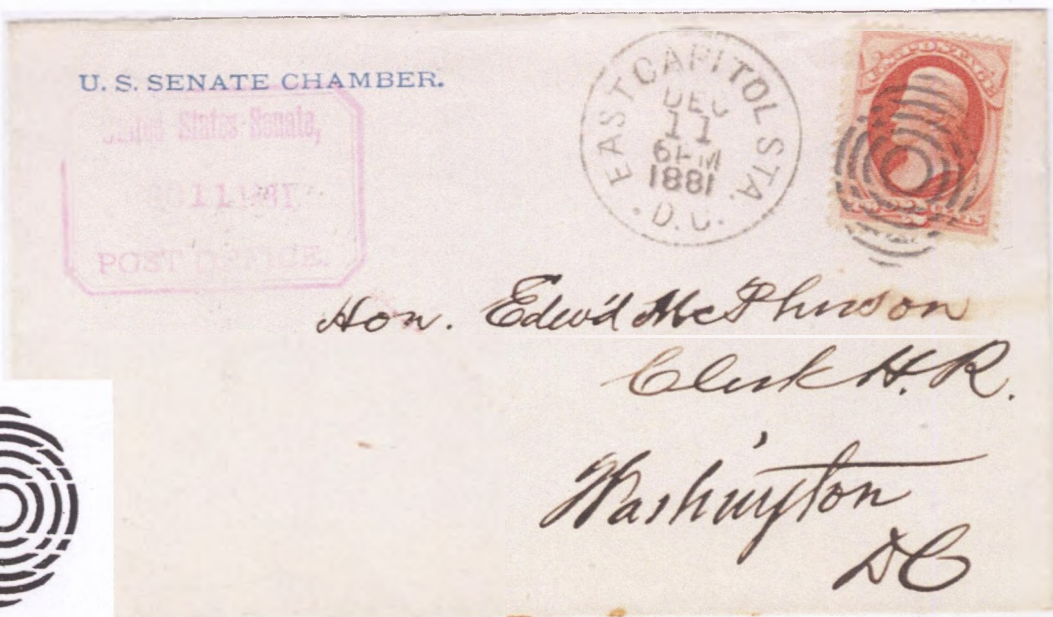 U. S. SENATE CHAMBER.
United States Senate,
11
POST OFFICE.
EAST CAPITOL STA.
DEC
11
6 PM
1881
D.C.
U.S. POSTAGE
Hon. Edwd McPherson
Clerk H.R.
Washington
DC